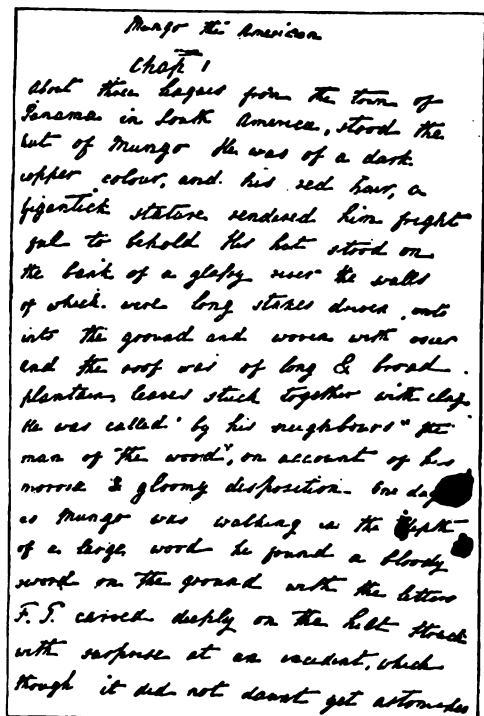 Mungo the American
Chap 1
About three leagues from the town of
Panama in South America, stood the
hut of Mungo He was of a dark
copper colour, and his red hair, a
gigantick stature rendered him fright
ful to behold His hut stood on
the bank of a glassy river the walls
of which were long stakes driven
into the ground and woven with osier
and the roof was of long & broad
plantain leaves stuck together with clay
He was called by his neighbours "the
man of the wood", on account of his
morose & gloomy disposition. One day
as Mungo was walking in the depth
of a large wood he found a bloody
sword on the ground with the letters
F. T. carved deeply on the hilt Struck
with surprise at an incident, which
though it did not daunt yet astonished